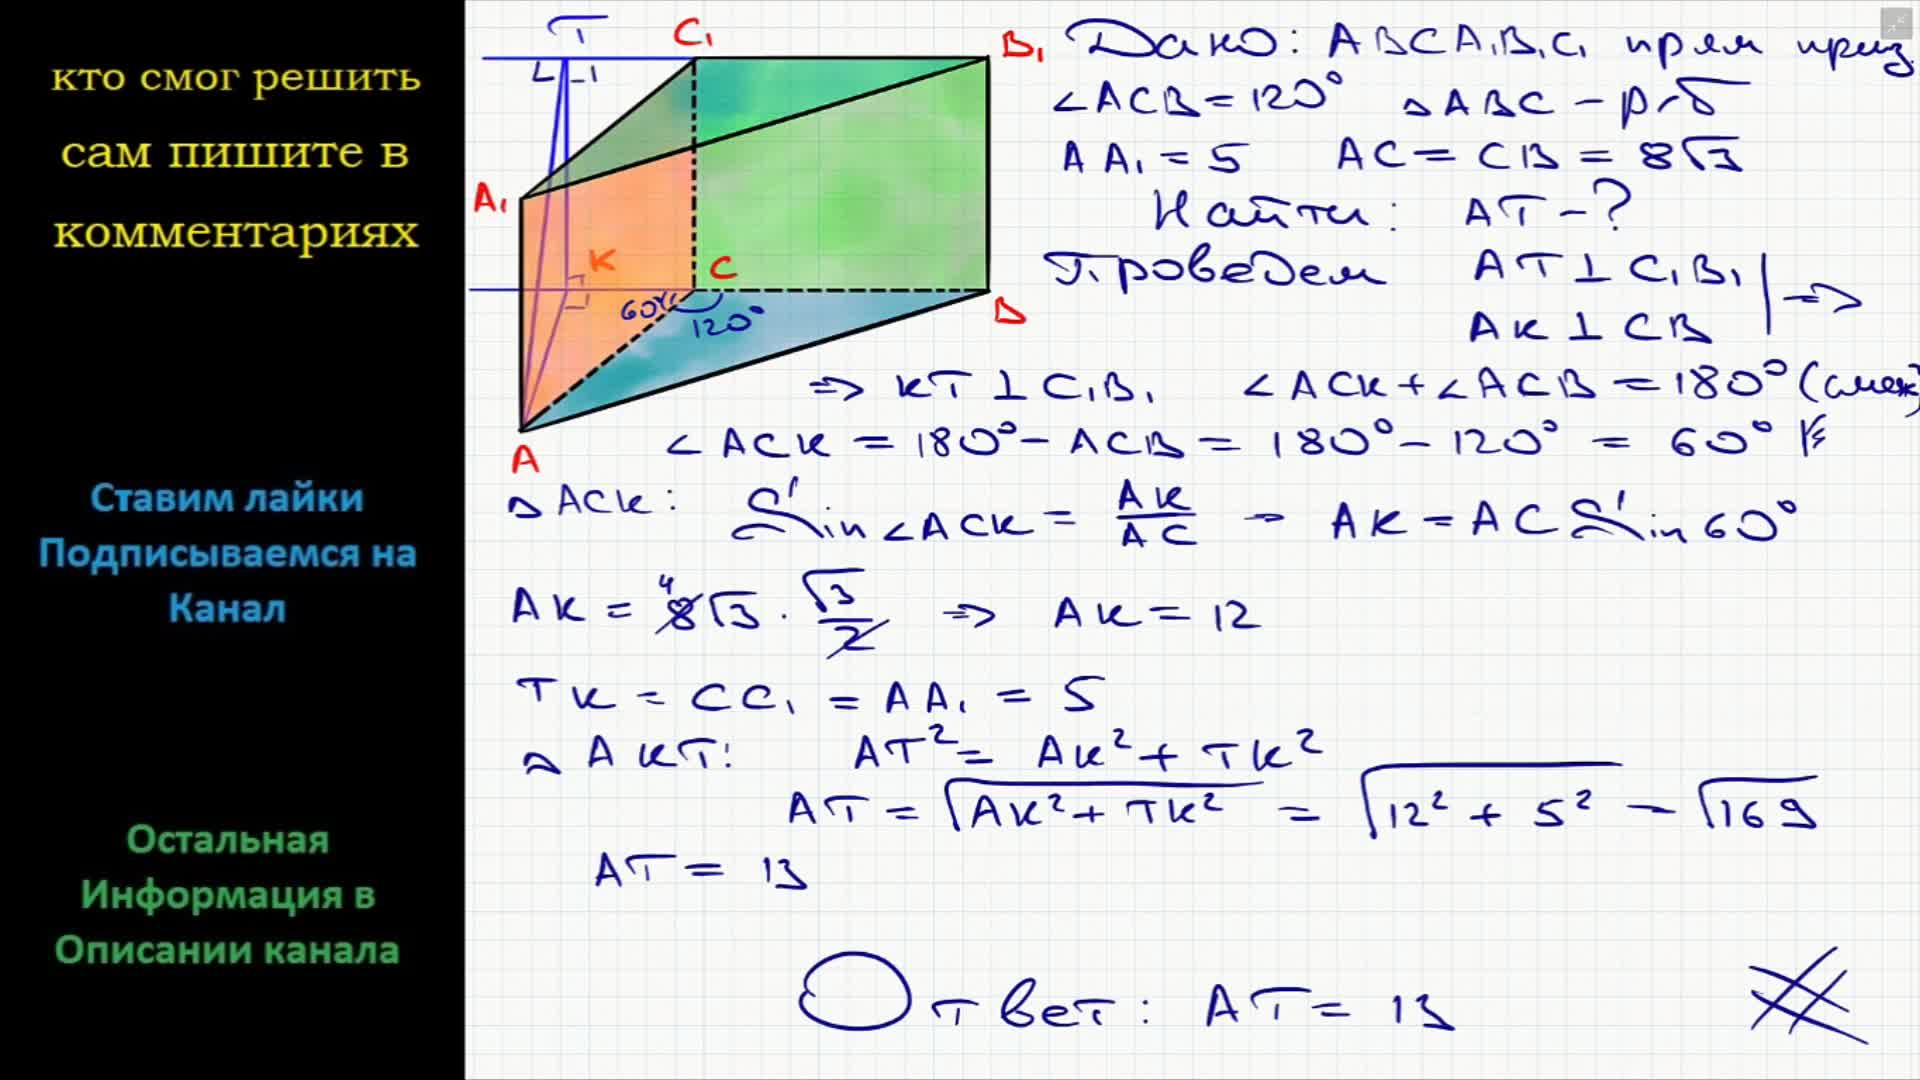 кто смог решить
сам пишите в
комментариях
Ставим лайки
Подписываемся на
Канал
Остальная
Информация в
Описании канала
T C₁ B₁
A₁
K C
60° 120° B
A
Дано: ABCA₁B₁C₁ прям приз.
∠ACB = 120° △ABC – р-б
AA₁ = 5 AC = CB = 8√3
Найти: AT – ?
Проведем AT ⊥ C₁B₁
AK ⊥ CB ⇒
⇒ KT ⊥ C₁B₁ ∠ACK + ∠ACB = 180° (смеж)
∠ACK = 180° – ACB = 180° – 120° = 60°
△ACK: Sin∠ACK = AK/AC → AK = AC Sin 60°
AK = 8√3 · √3/2 ⇒ AK = 12
4
TK = CC₁ = AA₁ = 5
△AKT: AT² = AK² + TK²
AT = √AK² + TK² = √12² + 5² = √169
AT = 13
Ответ: AT = 13